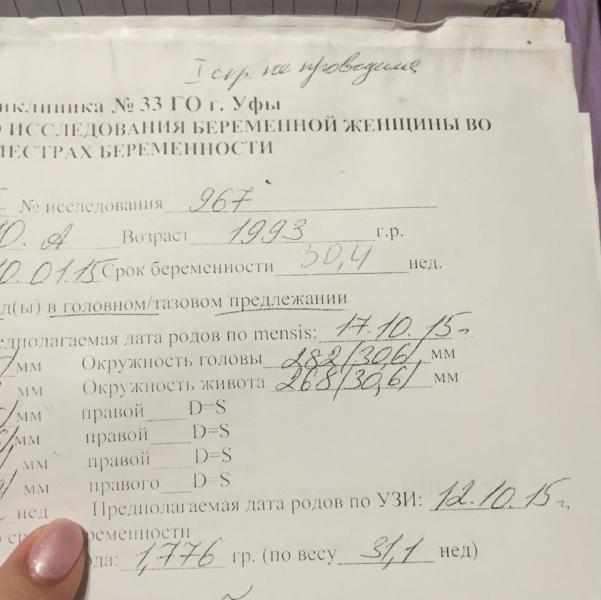 I скр. не проводила
иклиника № 33 ГО г. Уфы
О ИССЛЕДОВАНИЯ БЕРЕМЕННОЙ ЖЕНЩИНЫ ВО
МЕСТРАХ БЕРЕМЕННОСТИ
№ исследования 967
Ю. А Возраст 1993 г.р.
0.01.15 Срок беременности 30,4 нед.
д(ы) в головном/тазовом предлежании
едполагаемая дата родов по mensis: 17.10.15г.
мм Окружность головы 282/30,6/ мм
мм Окружность живота 268/30,6/ мм
мм правой ____ D=S
мм правой ____ D=S
мм правой ____ D=S
мм правого ___ D=S
нед Предполагаемая дата родов по УЗИ: 12.10.15г.
о ср еменности
ода: 1,776 гр. (по весу 31,1 нед)